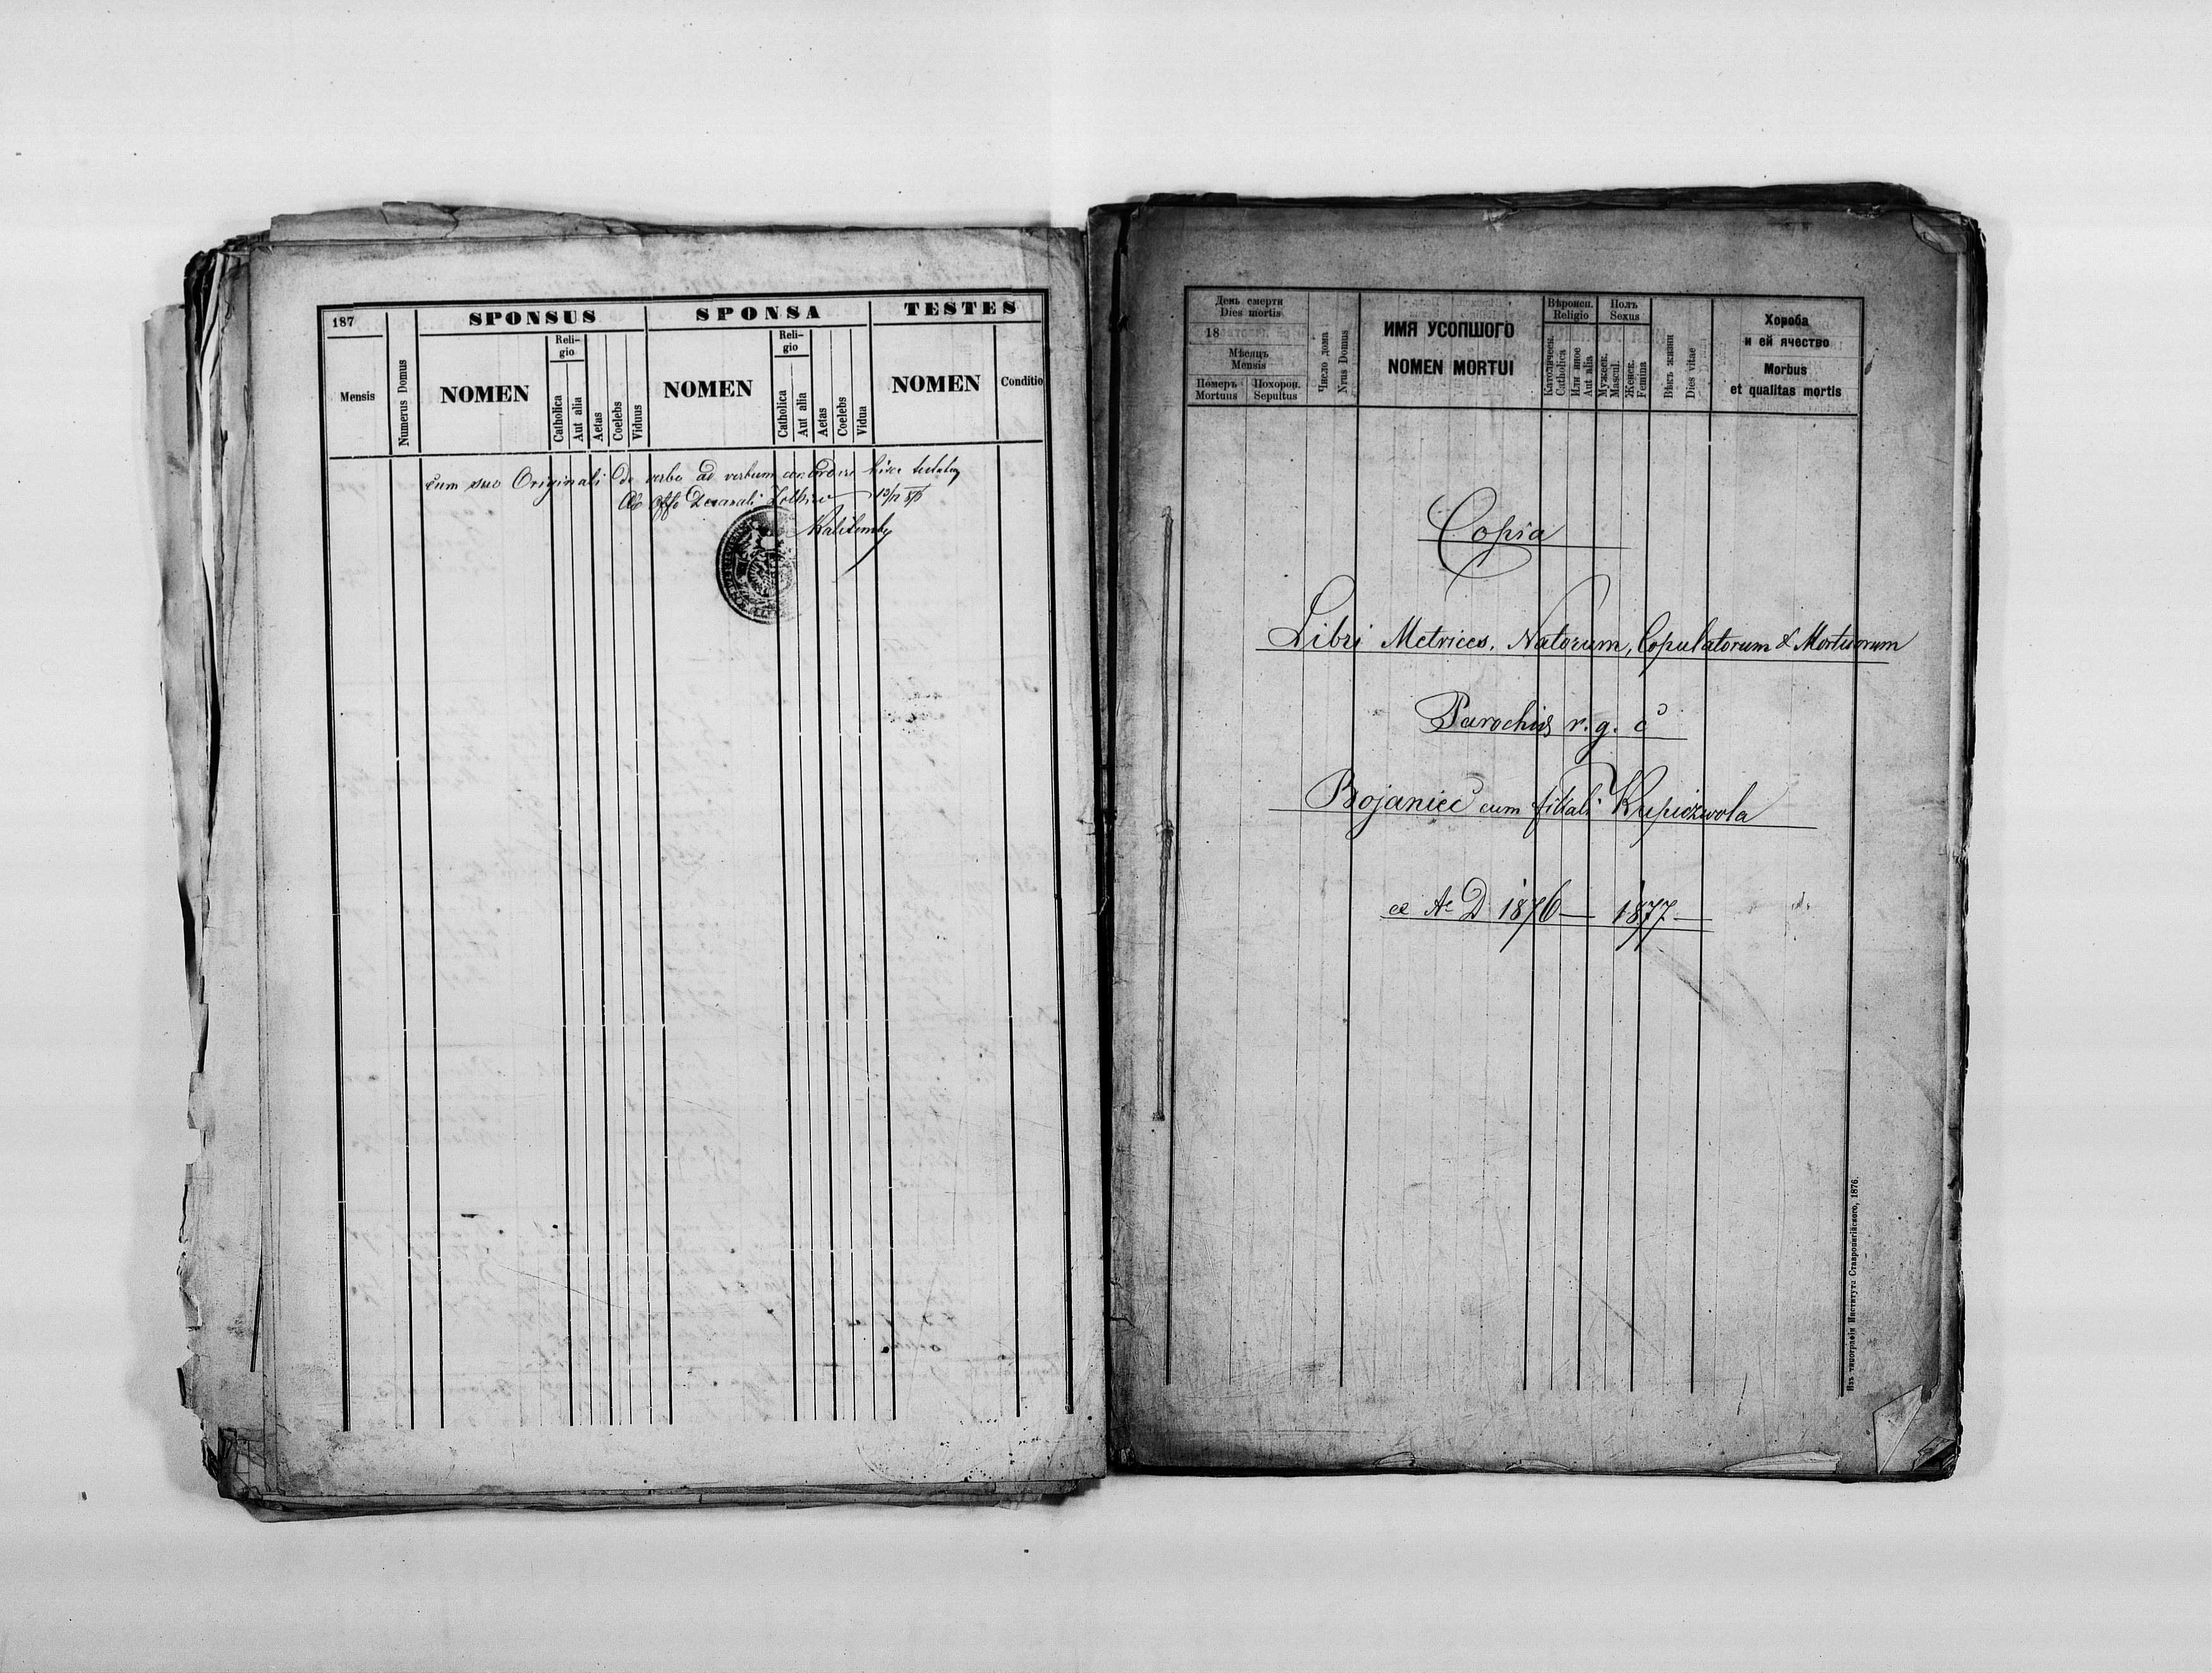 187
SPONSUS
SPONSA
TESTES
Mensis
Numerus Domus
NOMEN
Reli-
gio
Catholica
Aut alia
Aetas
Coelebs
Viduus
NOMEN
Reli-
gio
Catholica
Aut alia
Aetas
Coelebs
Vidua
NOMEN
Conditio
cum suo Originali de verbo ad verbum concordare hisce testatur
Ab Offo Decanali
День смерти
Dies mortis
18
Мѣсяцъ
Mensis
Померъ
Mortuus
Похорон.
Sepultus
Число дома
Nrus Domus
ИМЯ УСОПШОГО
NOMEN MORTUI
Вѣроисп.
Religio
Католическ.
Catholica
Или иное
Aut alia
Полъ
Sexus
Мужеск.
Mascul.
Женск.
Femina
Вѣкъ жизни
Dies vitae
Хороба
и ей ячество
Morbus
et qualitas mortis
Copia
Libri Metrices. Natorum, Copulatorum & Mortuorum
Parochiæ r. g. c
Bojaniec cum filiali Kupiczwola
ex Ao D 1876 — 1877 —
Изъ типографіи Института Ставропигійского, 1876.